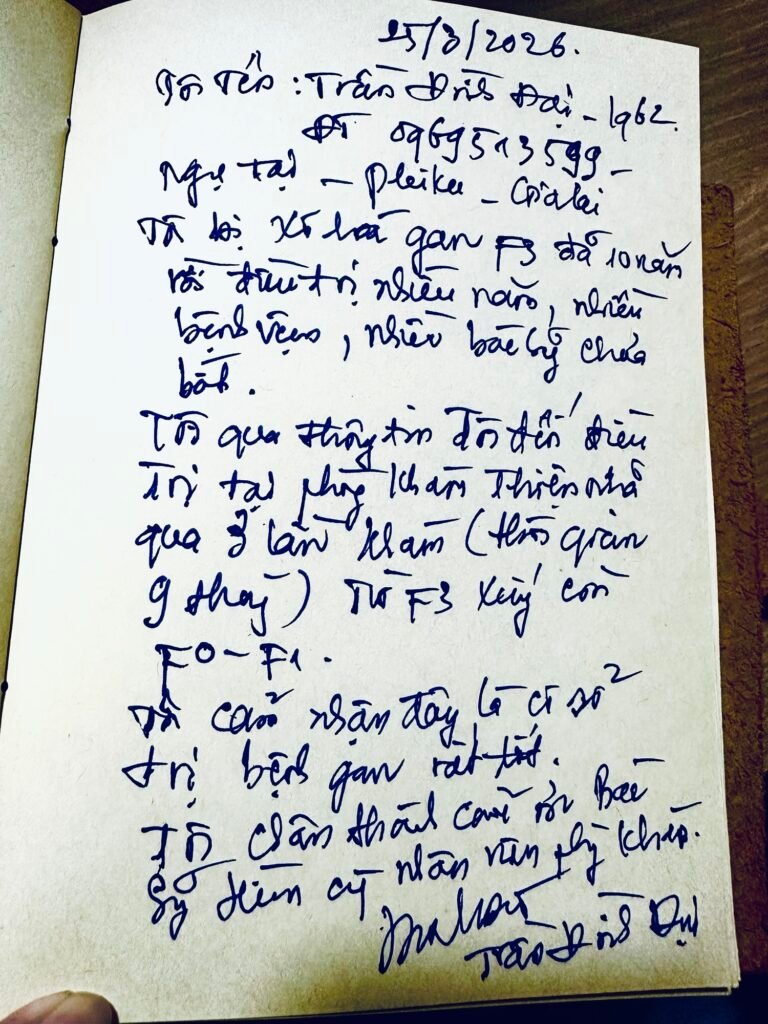 25/3/2026.
Tôi Tên : Trần Đình Đại - 1962.
ĐT 0969513599 -
Ngụ tại - Pleiku - Gia lai
Tôi bị xơ hoá gan F3 đã 10 năm
rồi điều trị nhiều năm, nhiều
bệnh viện, nhiều bác sỹ chưa
bớt.
Tôi qua thông tin tôi đến điều
trị tại phòng khám Thiện nhân
qua 3 lần khám (thời gian
9 tháng) Từ F3 xuống còn
F0 - F1.
Tôi cảm nhận đây là cơ sở
trị bệnh gan rất tốt.
Tôi chân thành cảm ơn Bác
Sỹ cùng nhân viên phòng khám.
Trần Đình Đại